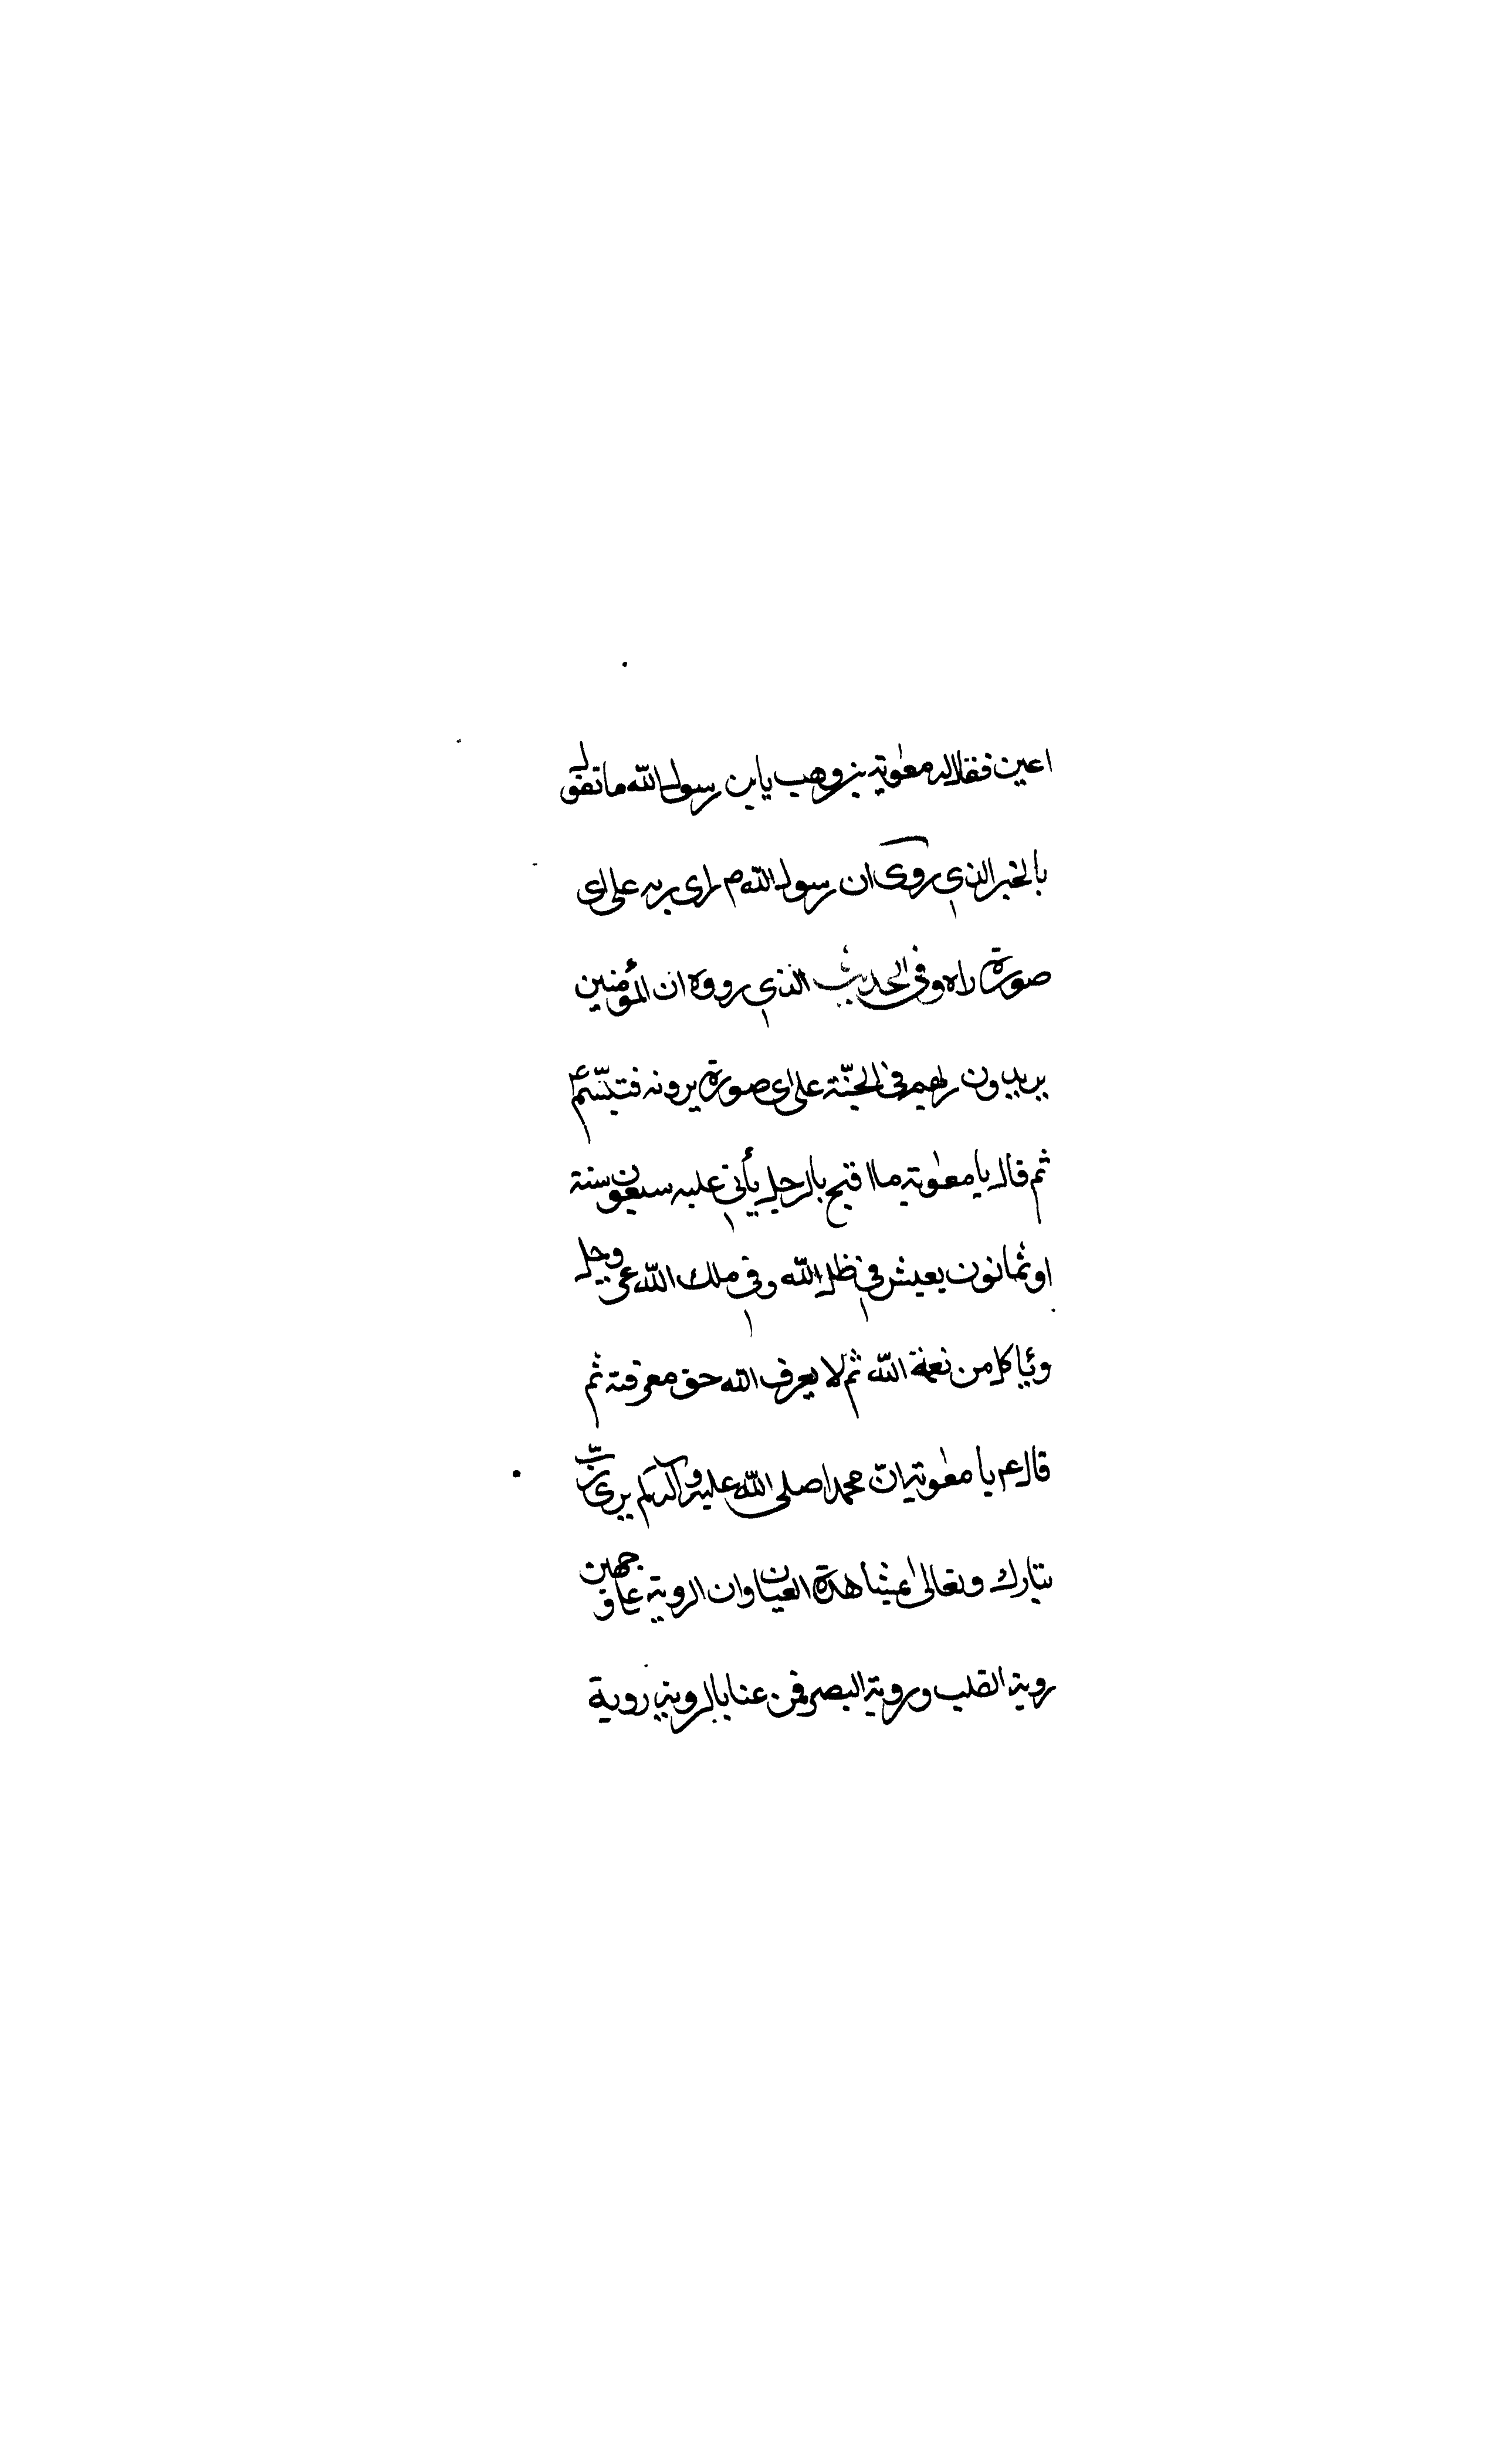 اعين فقال له معوية بن وهب يابن رسول الله ما تقول
بالخبر الذي روى ان رسول الله ص راى ربه على اى
صورة راه وفي الحديث الذي رووه ان المؤمنين
يريدون ربهم في الجنّة على اى صورة يرونه فتبسّم ع
ثم قال يا معوية ما اقبح بالرجل يأتي عليه سبعون سنة
او ثمانون يعيش في ظل الله وفي ملك الله عز وجل
وياكل من نعمة الله ثم لا يعرف الله حق معرفته ثم
قال عم يا معوية انّ محمدا صلى الله عليه وآله لم يرى ربّ
تبارك وتعالى بمشاهدة العيان وان الروية على وجهين
روية القلب وروية البصر فمن عنا بالروية روية